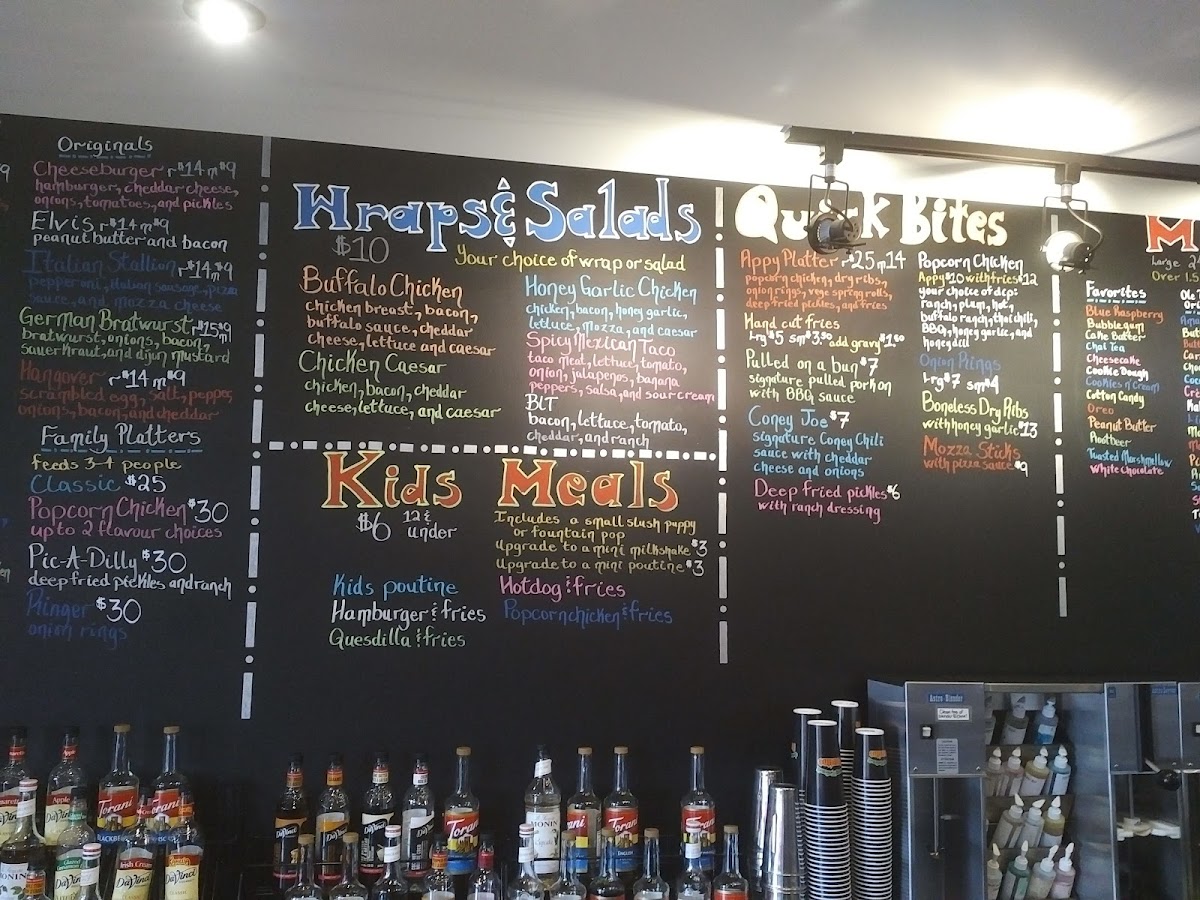 Originals
Cheeseburger r$14 m$9
hamburger, cheddar cheese,
onions, tomatoes, and pickles
Elvis r$14 m$9
peanut butter and bacon
Italian Stallion r$14 m$9
pepperoni, italian sausage, pizza
sauce, and mozza cheese
German Bratwurst r$15 m$9
bratwurst, onions, bacon,
sauerkraut, and dijon mustard
Hangover r$14 m$9
scrambled egg, salt, pepper,
onions, bacon, and cheddar
Family Platters
feeds 3-4 people
Classic $25
Popcorn Chicken $30
up to 2 flavour choices
Pic-A-Dilly $30
deep fried pickles and ranch
Ringer $30
onion rings
Wraps & Salads
$10
Your choice of wrap or salad
Buffalo Chicken
chicken breast, bacon,
buffalo sauce, cheddar
cheese, lettuce and caesar
Chicken Caesar
chicken, bacon, cheddar
cheese, lettuce, and caesar
Honey Garlic Chicken
chicken, bacon, honey garlic,
lettuce, mozza, and caesar
Spicy Mexican Taco
taco meat, lettuce, tomato,
onion, jalapenos, banana
peppers, salsa, and sour cream
BLT
bacon, lettuce, tomato,
cheddar, and ranch
Kids Meals
$6 12 & under
Includes a small slush puppy
or fountain pop
Upgrade to a mini milkshake $3
Upgrade to a mini poutine $3
Kids poutine
Hamburger & fries
Quesdilla & fries
Hotdog & fries
Popcorn chicken & fries
Quick Bites
Appy Platter r$25 m14
popcorn chicken, dry ribs,
onion rings, vege spring rolls,
deep fried pickles, and fries
Hand cut fries
Lrg $5 sm $3.50 add gravy $1.50
Pulled on a bun $7
signature pulled pork on
with BBQ sauce
Coney Joe $7
signature Coney Chili
sauce with cheddar
cheese and onions
Deep fried pickles $6
with ranch dressing
Popcorn Chicken
Appy $10 with fries $12
your choice of dip:
ranch, plum, hot,
buffalo ranch, thai chili,
BBQ, honey garlic, and
honey dill
Onion Rings
Lrg $7 sm $4
Boneless Dry Ribs
with honey garlic $13
Mozza Sticks
with pizza sauce $9
M
Large 24
Over 1.5
Favorites
Blue Raspberry
Bubblegum
Cake Butter
Chai Tea
Cheesecake
Cookie Dough
Cookies n' Cream
Cotton Candy
Oreo
Peanut Butter
Rootbeer
Toasted Marshmallow
White Chocolate
Apple
Torani
DaVinci
Irish Cream
DaVinci
DaVinci
MONIN
DaVinci
DaVinci
Torani
MONIN
Torani
Torani